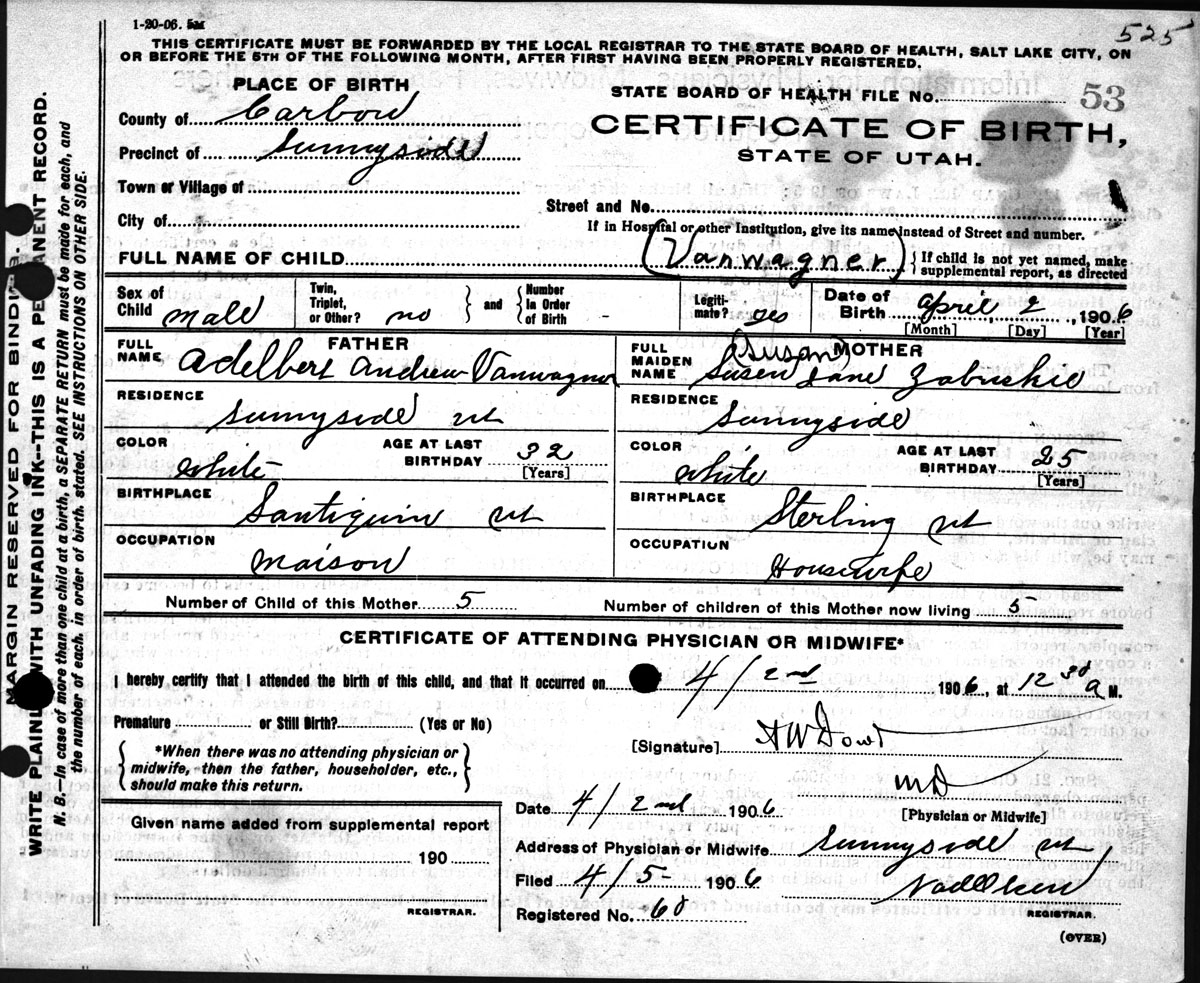 1-20-06. 5M
525
THIS CERTIFICATE MUST BE FORWARDED BY THE LOCAL REGISTRAR TO THE STATE BOARD OF HEALTH, SALT LAKE CITY, ON
OR BEFORE THE 5TH OF THE FOLLOWING MONTH, AFTER FIRST HAVING BEEN PROPERLY REGISTERED.
MARGIN RESERVED FOR BINDING.
WRITE PLAINLY WITH UNFADING INK--THIS IS A PERMANENT RECORD.
N. B.--In case of more than one child at a birth, a SEPARATE RETURN must be made for each, and
the number of each, in order of birth, stated. SEE INSTRUCTIONS ON OTHER SIDE.
PLACE OF BIRTH
County of Carbon
Precinct of Sunnyside
Town or Village of
City of
STATE BOARD OF HEALTH FILE No. 53
CERTIFICATE OF BIRTH,
STATE OF UTAH.
Street and No.
If in Hospital or other Institution, give its name instead of Street and number.
FULL NAME OF CHILD (Vanwagner) { If child is not yet named, make
supplemental report, as directed
Sex of Child male
Twin, Triplet, or Other? no
and { Number in Order of Birth -
Legiti-mate? yes
Date of Birth April 2, 1906
[Month] [Day] [Year]
FATHER
FULL NAME Adelbert Andrew Vanwagner
RESIDENCE Sunnyside ut
COLOR White AGE AT LAST BIRTHDAY 32 [Years]
BIRTHPLACE Santiquin ut
OCCUPATION Maison
MOTHER
(Susan)
FULL MAIDEN NAME Susen Jane Zabriskie
RESIDENCE Sunnyside
COLOR White AGE AT LAST BIRTHDAY 25 [Years]
BIRTHPLACE Sterling ut
OCCUPATION Housewife
Number of Child of this Mother 5 Number of children of this Mother now living 5
CERTIFICATE OF ATTENDING PHYSICIAN OR MIDWIFE*
I hereby certify that I attended the birth of this child, and that it occurred on 4/2nd 1906, at 12 30 a M.
Premature or Still Birth? (Yes or No)
{ *When there was no attending physician or
midwife, then the father, householder, etc.,
should make this return. }
[Signature] A W Dowd
MD
[Physician or Midwife]
Given name added from supplemental report
190
REGISTRAR.
Date 4/2nd 1906
Address of Physician or Midwife Sunnyside ut
Filed 4/5 1906
Registered No. 60
REGISTRAR.
(OVER)